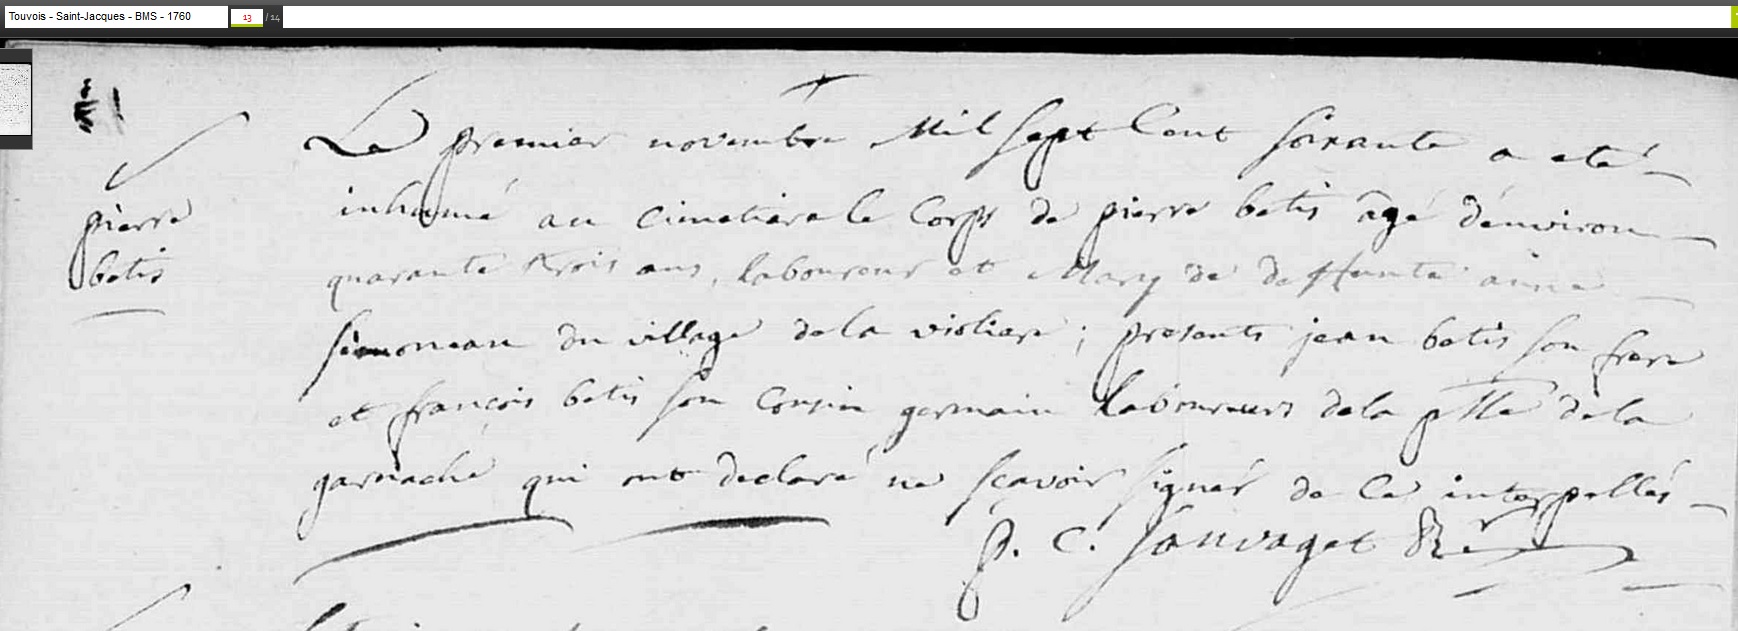 Touvois - Saint-Jacques - BMS - 1760 13 / 14
Le premier novembre Mil Sept Cent Soixante a eté
inhumé au Cimetiere le Corps de pierre betis âgé d'environ
quarante trois ans, laboureur et Mary de deffunte
Simoneau du village de la violiere ; presents jean betis son frere
et françois betis son Cousin germain laboureurs de la psse de la
garnache qui ont declaré ne scavoir signer de ce interpellés
P. C. Sauvaget Rr
pierre
betis